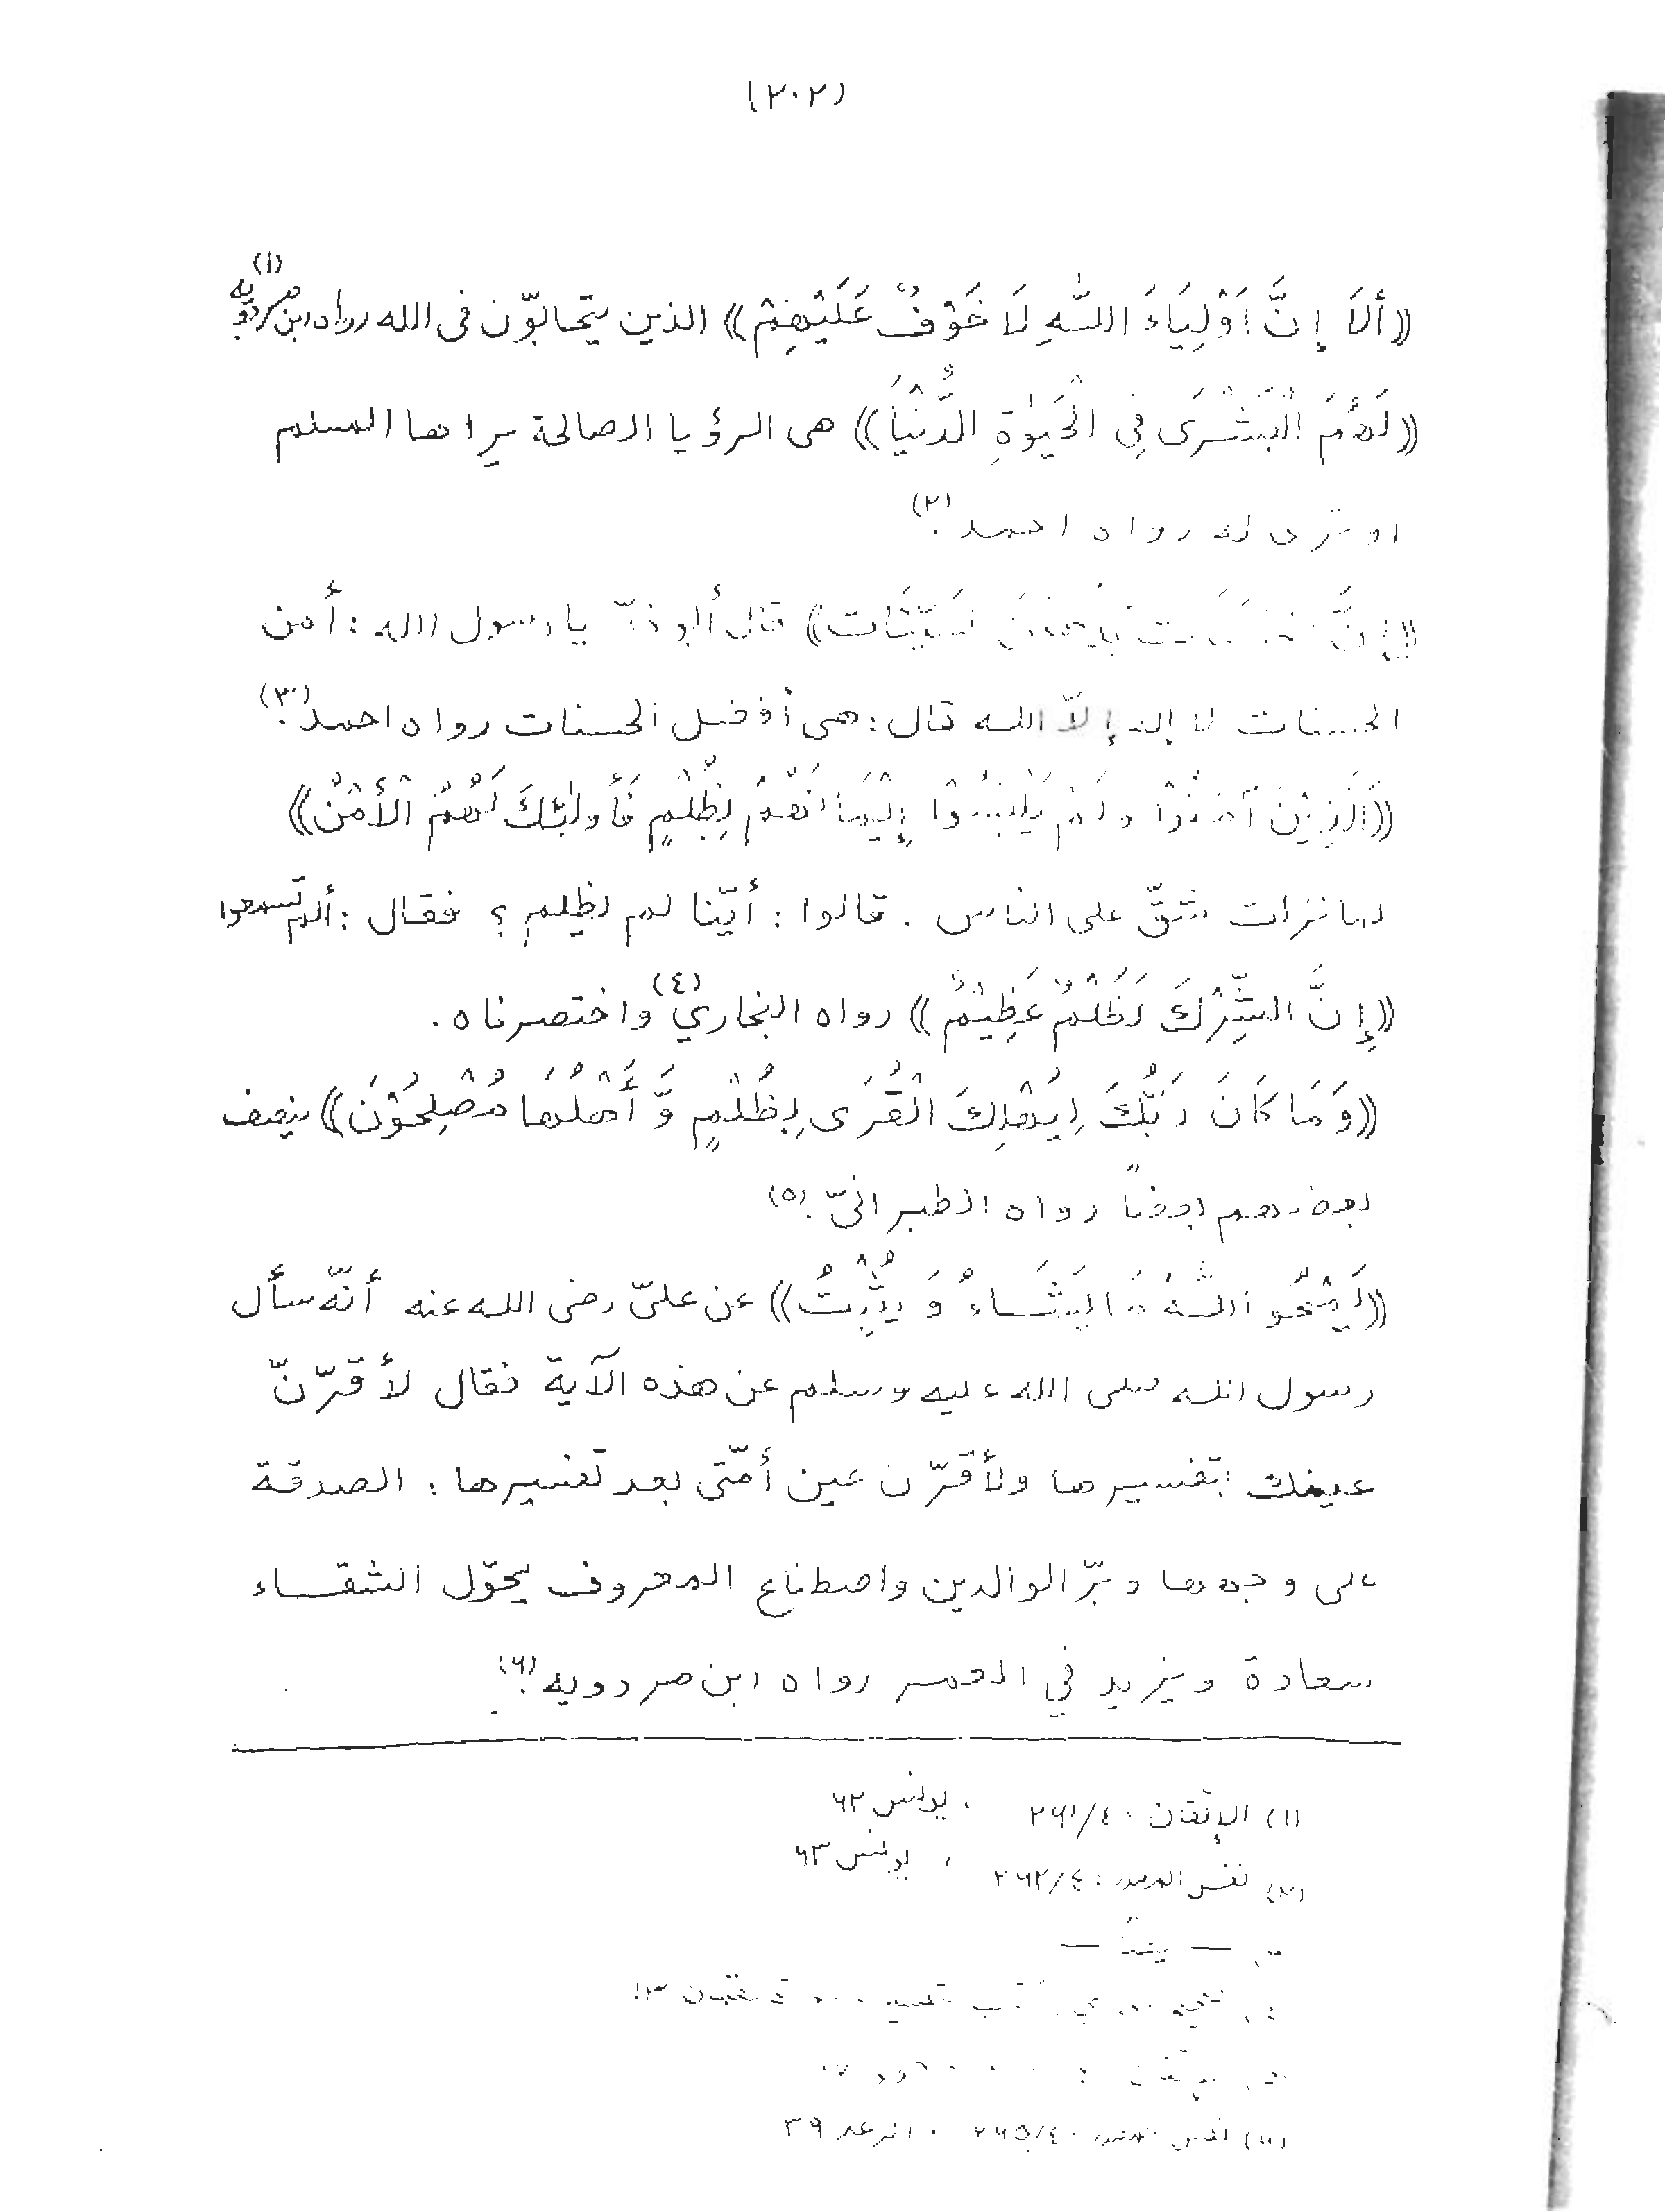 (٢٠٢)
((أَلَا إِنَّ أَوْلِيَاءَ اللَّهِ لَا خَوْفٌ عَلَيْهِمْ)) الذين يتحابّون فى الله رواه ابن مردويه (١)
((لَهُمُ الْبُشْرَى فِي الْحَيٰوةِ الدُّنْيَا)) هى الرؤيا الصالحة يراها المسلم
او ترى له رواه احمد. (٢)
((إِنَّ الْحَسَنَاتِ يُذْهِبْنَ السَّيِّئَات)) قال أبو ذرّ يا رسول الله : أمن
الحسنات لا إله إلاّ الله قال : هى أفضل الحسنات رواه احمد. (٣)
((اَلَّذِيْنَ آمَنُوْا وَلَمْ يَلْبِسُوْا إِيْمَانَهُمْ بِظُلْمٍ فَأُولٰئِكَ لَهُمُ الْأَمْنُ))
لما نزلت شقّ على الناس . قالوا : أيّنا لم يظلم ؟ فقال : ألم تسمعوا
((إِنَّ الشِّرْكَ لَظُلْمٌ عَظِيْمٌ)) رواه البخاري (٤) واختصرناه .
((وَمَا كَانَ رَبُّكَ لِيُهْلِكَ الْقُرَى بِظُلْمٍ وَّأَهْلُهَا مُصْلِحُوْنَ)) ينصف
بعضهم بعضاً رواه الطبرانىّ. (٥)
((يَمْحُو اللَّهُ مَا يَشَاءُ وَيُثْبِتُ)) عن علىّ رضى الله عنه أنّه سأل
رسول الله صلى الله عليه وسلم عن هذه الآية فقال لأقرّنّ
عينك بتفسيرها ولأقرّن عين أمّتى بعد تفسيرها : الصدقة
على وجهها وبرّ الوالدين واصطناع المعروف يحوّل الشقاء
سعادة ويزيد في العمر رواه ابن مردويه. (٦)
(١) الإتقان : ٢٦١/٤ ، يونس ٦٢
(٢) نفس المصدر : ٢٦٢/٤ ، يونس ٦٣
لقمان ١٣
(٦) نفس المصدر ٢٦٥/٤ . الرعد ٣٩